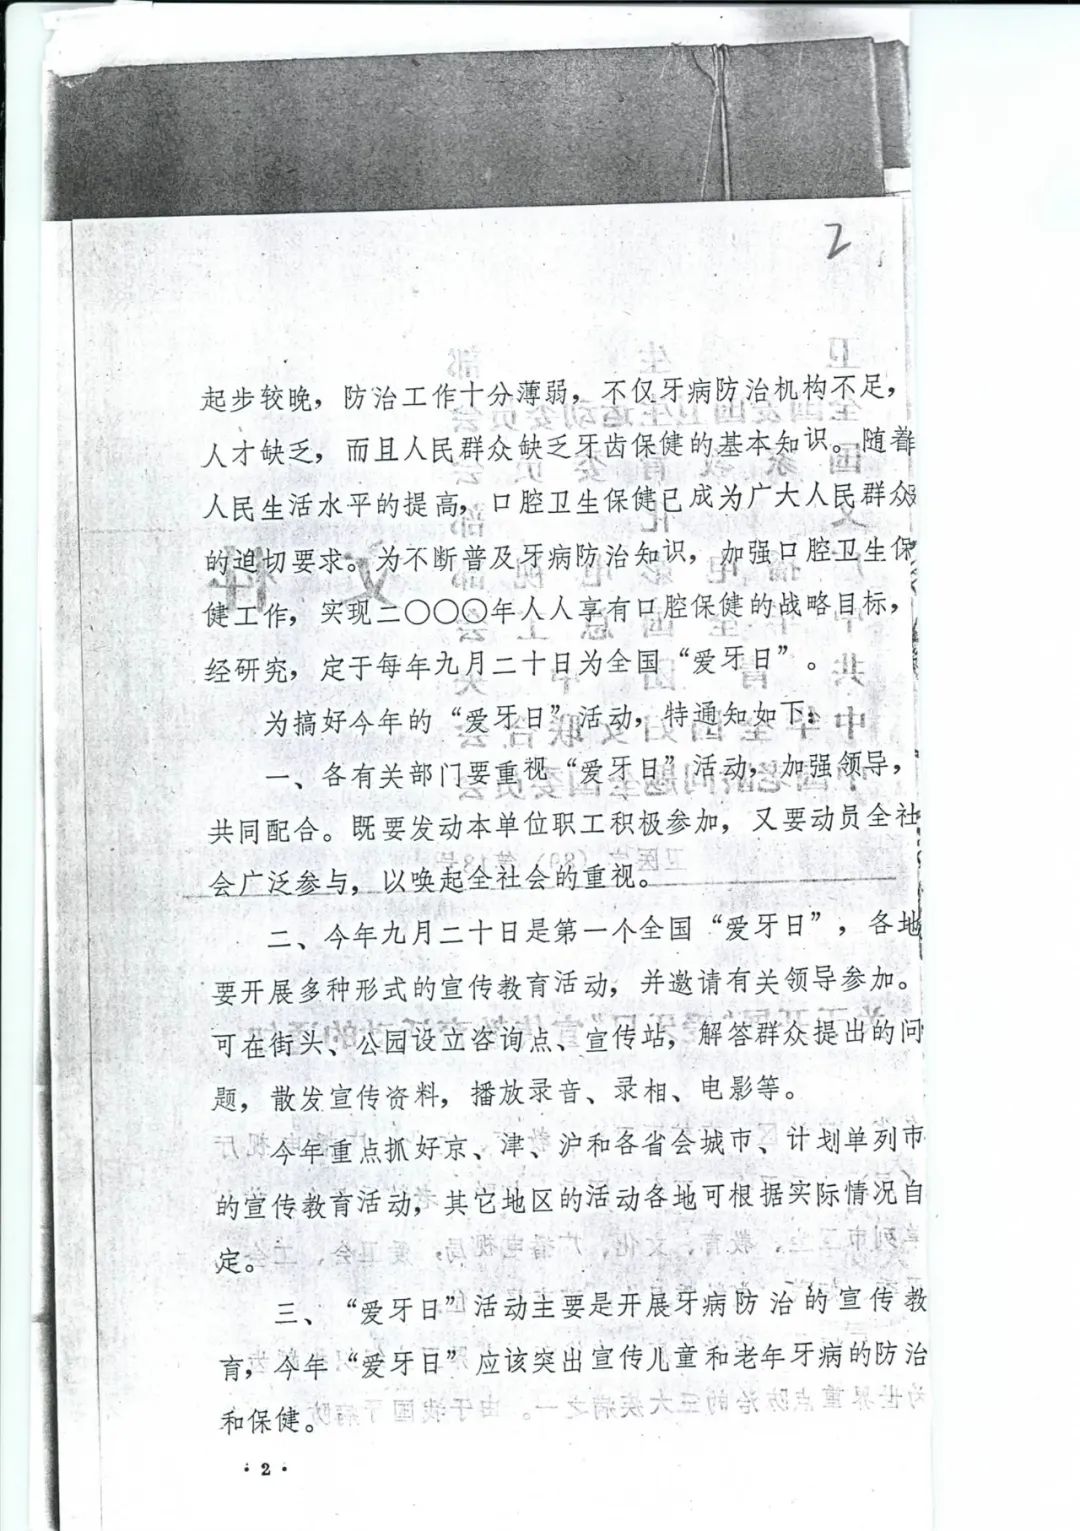 2
起步较晚，防治工作十分薄弱，不仅牙病防治机构不足，
人才缺乏，而且人民群众缺乏牙齿保健的基本知识。随着
人民生活水平的提高，口腔卫生保健已成为广大人民群众
的迫切要求。为不断普及牙病防治知识，加强口腔卫生保
健工作，实现二〇〇〇年人人享有口腔保健的战略目标，
经研究，定于每年九月二十日为全国“爱牙日”。
为搞好今年的“爱牙日”活动，特通知如下：
一、各有关部门要重视“爱牙日”活动，加强领导，
共同配合。既要发动本单位职工积极参加，又要动员全社
会广泛参与，以唤起全社会的重视。
二、今年九月二十日是第一个全国“爱牙日”，各地
要开展多种形式的宣传教育活动，并邀请有关领导参加。
可在街头、公园设立咨询点、宣传站，解答群众提出的问
题，散发宣传资料，播放录音、录相、电影等。
今年重点抓好京、津、沪和各省会城市、计划单列市
的宣传教育活动，其它地区的活动各地可根据实际情况自
定。
三、“爱牙日”活动主要是开展牙病防治的宣传教
育，今年“爱牙日”应该突出宣传儿童和老年牙病的防治
和保健。
·2·